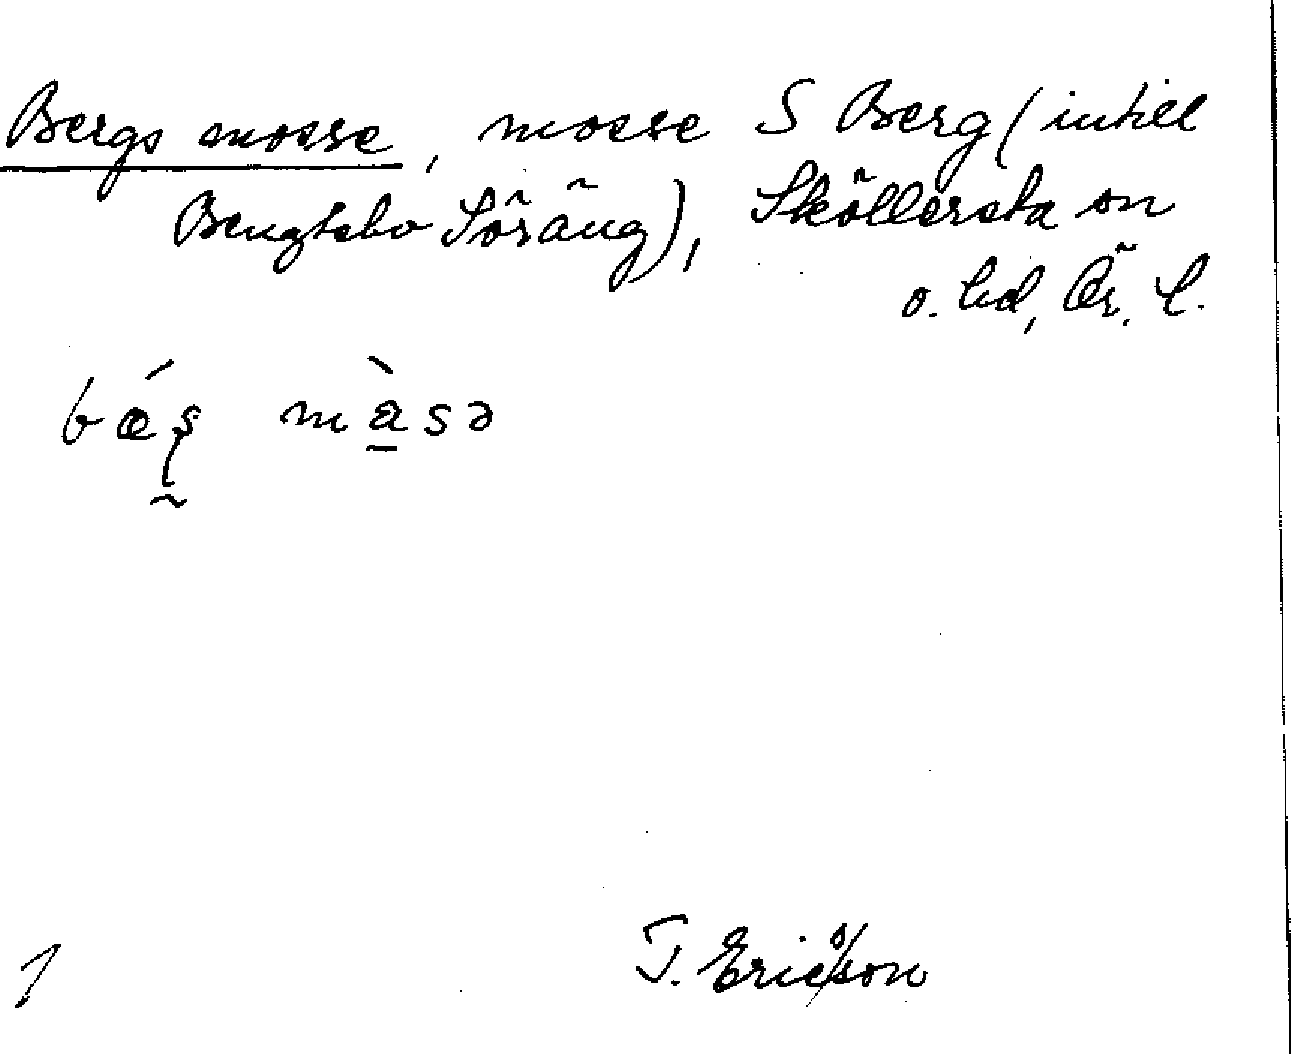 Bergs mosse, mosse S Berg (intill
Bengtsbo Söräng), Sköllersta sn
o. hd, Ör. l.
bǽʂ màsə
T. Ericsson
1